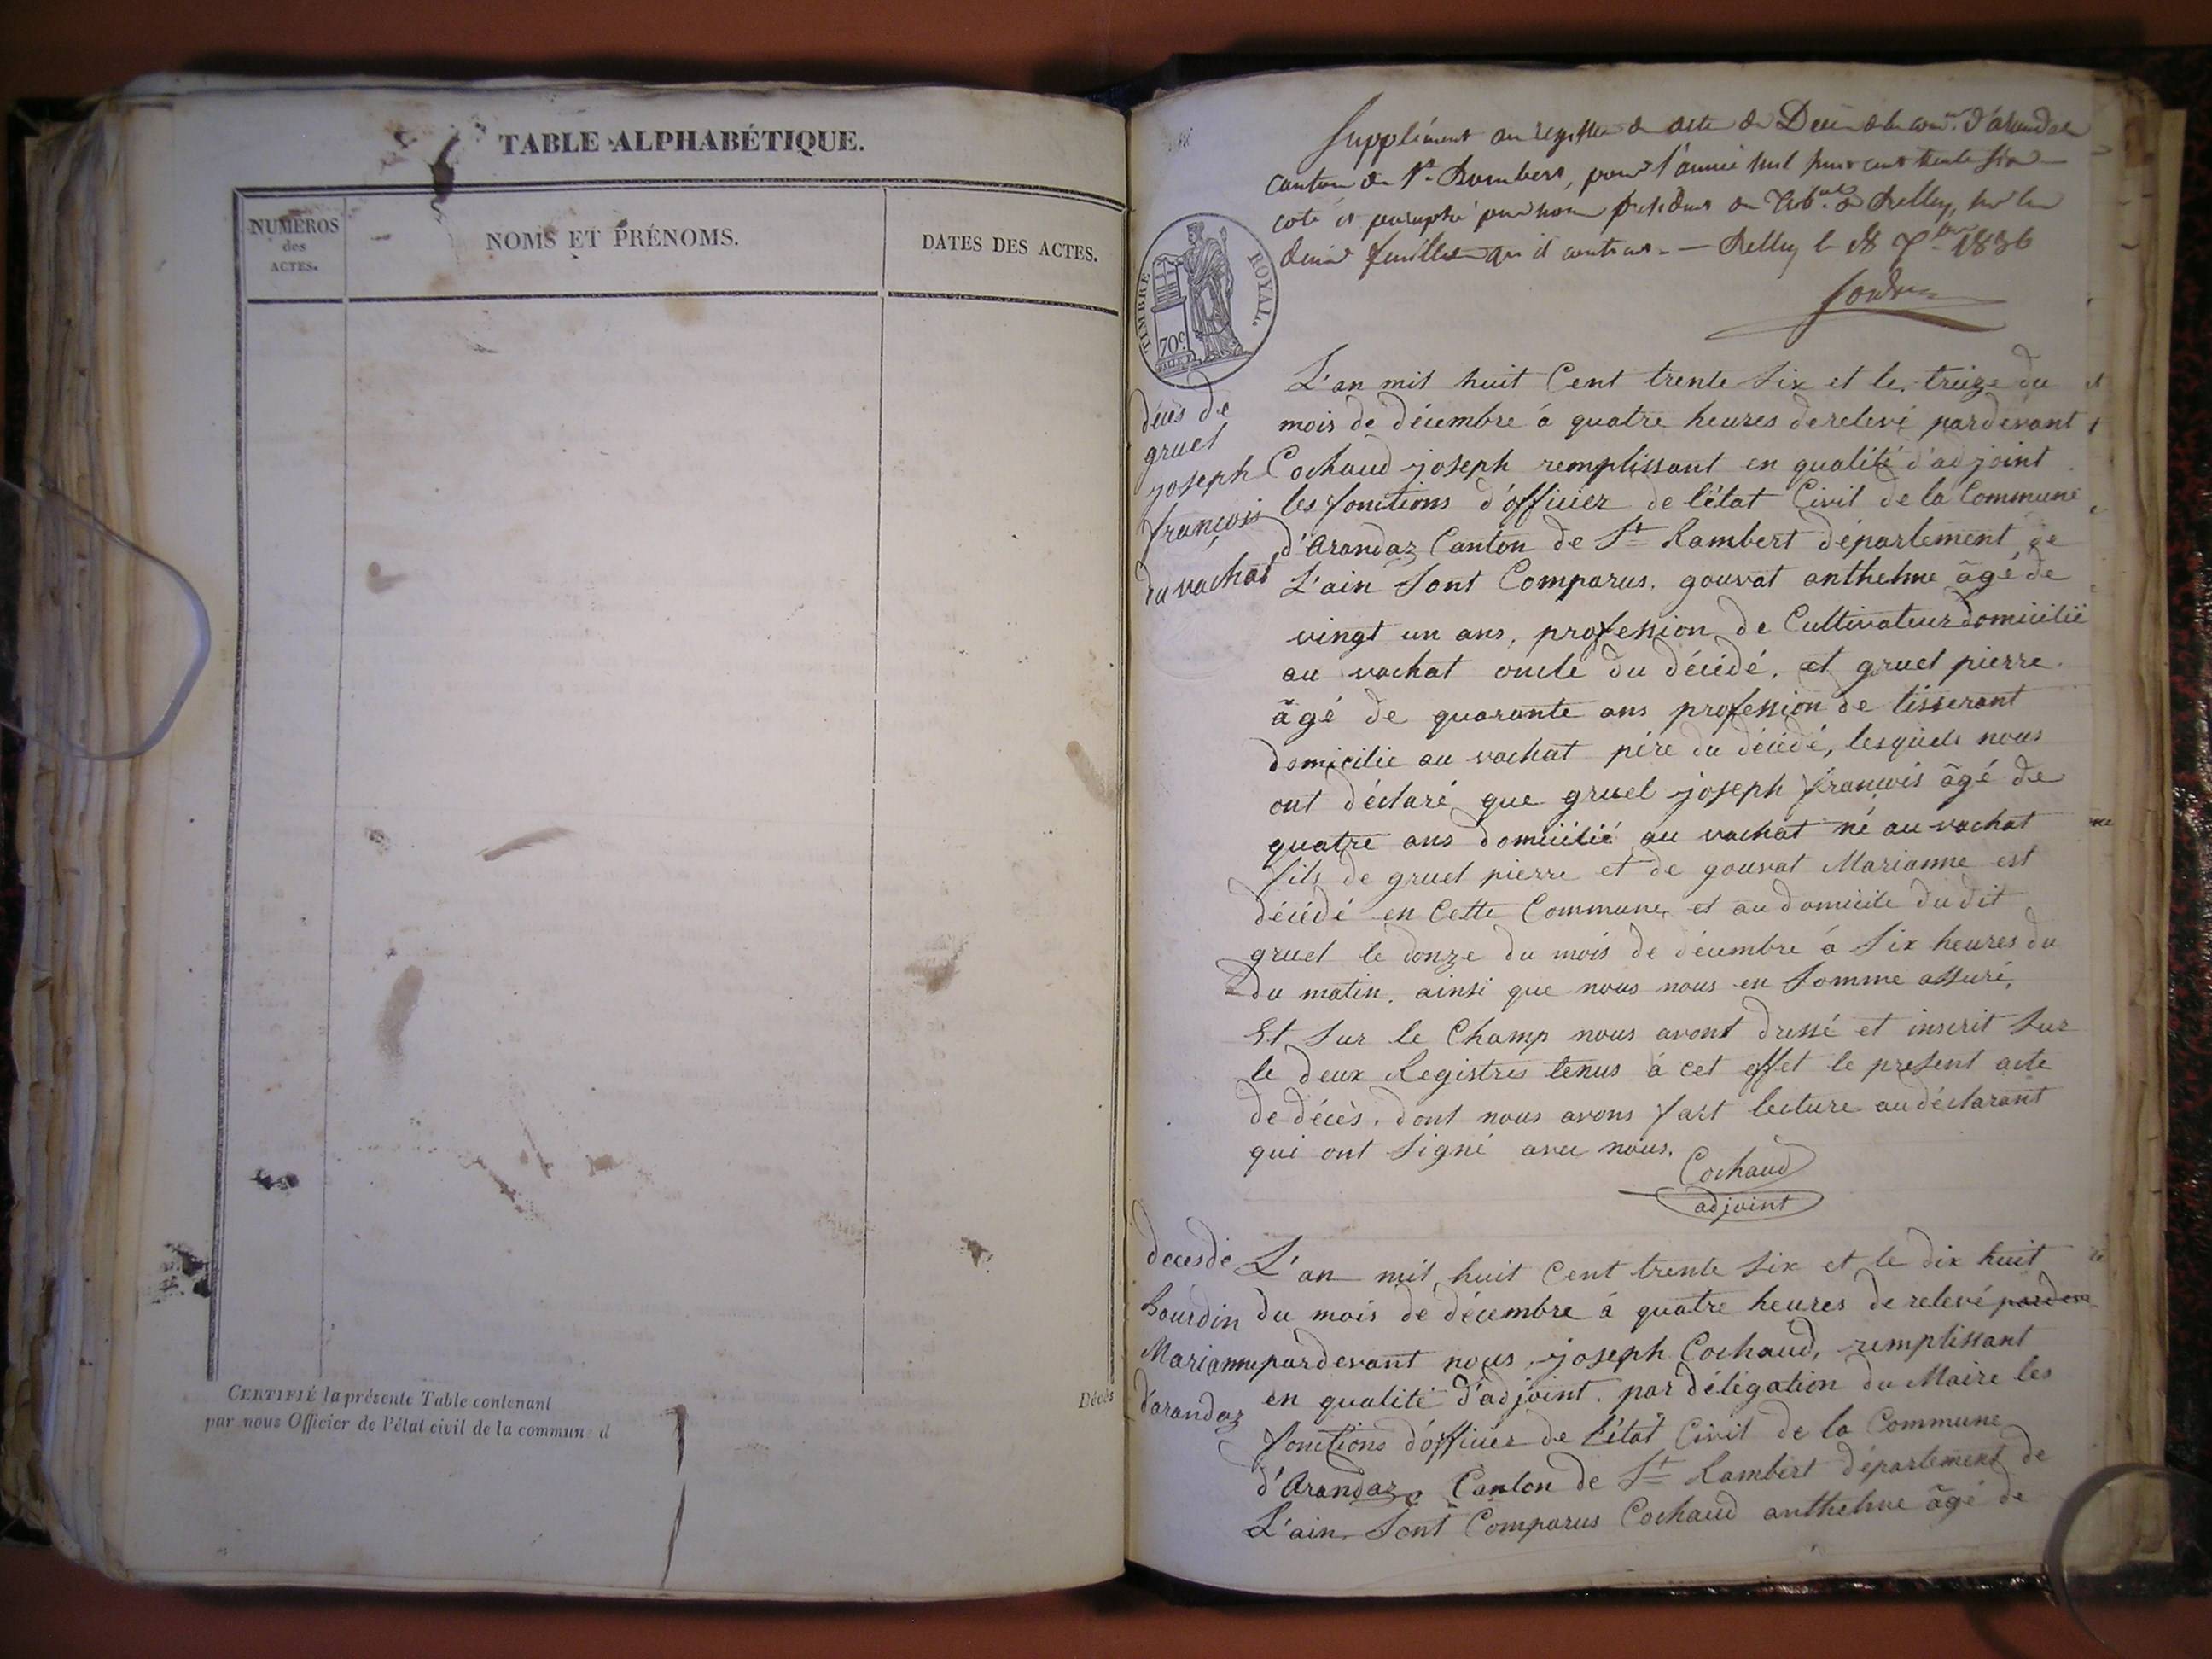 TABLE ALPHABÉTIQUE.
NUMÉROS
des
ACTES.
NOMS ET PRÉNOMS.
DATES DES ACTES.
CERTIFIÉ la présente Table contenant
Décès
par nous Officier de l'état civil de la commun d
Supplément au registre de acte de Décès de la com.ne d'arandas
canton de St. Rambert, pour l'année mil huit cent trente six
coté et paraphé par nous président du Trib.al de Belley, sur les
feuillets qu'il contient. — Belley le 18 7bre 1836
TIMBRE ROYAL.
70c
décès de
gruel
joseph
françois
du vachat
L'an mil huit Cent trente six et le treize du
mois de décembre á quatre heures de relevé pardevant
Cochaud joseph remplissant en qualité d'adjoint
les fonctions d'officier de l'état Civil de la Commune
d'Arandaz Canton de St Rambert département de
L'ain Sont Comparus. gouvat anthelme âgé de
vingt un ans, profession de Cultivateur domicilié
au vachat oncle du décédé, et gruel pierre
âgé de quarante ans profession de tisserant
domicilie au vachat pére du décédé, lesquels nous
ont déclaré que gruel joseph francois âgé de
quatre ans domicilié au vachat né au vachat
fils de gruel pierre et de gouvat Marianne est
décédé en Cette Commune, et au domicile du dit
gruel le donze du mois de décembre á Six heures du
du matin. ainsi que nous nous en Somme assuré,
Et Sur le Champ nous avont dressé et inscrit Sur
le deux Registres tenus á cet effet le present acte
de décès, dont nous avons fait lecture au déclarant
qui ont Signé avec nous.
Cochaud
adjoint
deces de
bourdin
Marianne
d'arandaz
L'an mil huit Cent trente Six et le dix huit
du mois de décembre á quatre heures de relevé pardeva
pardevant nous joseph Cochaud, remplissant
en qualité d'adjoint. par déligation du Maire les
fonctions d'officier de l'état Civil de la Commune
d'Arandaz Canton de St Rambert département de
L'ain Sont Comparus Cochaud anthelme âgé de